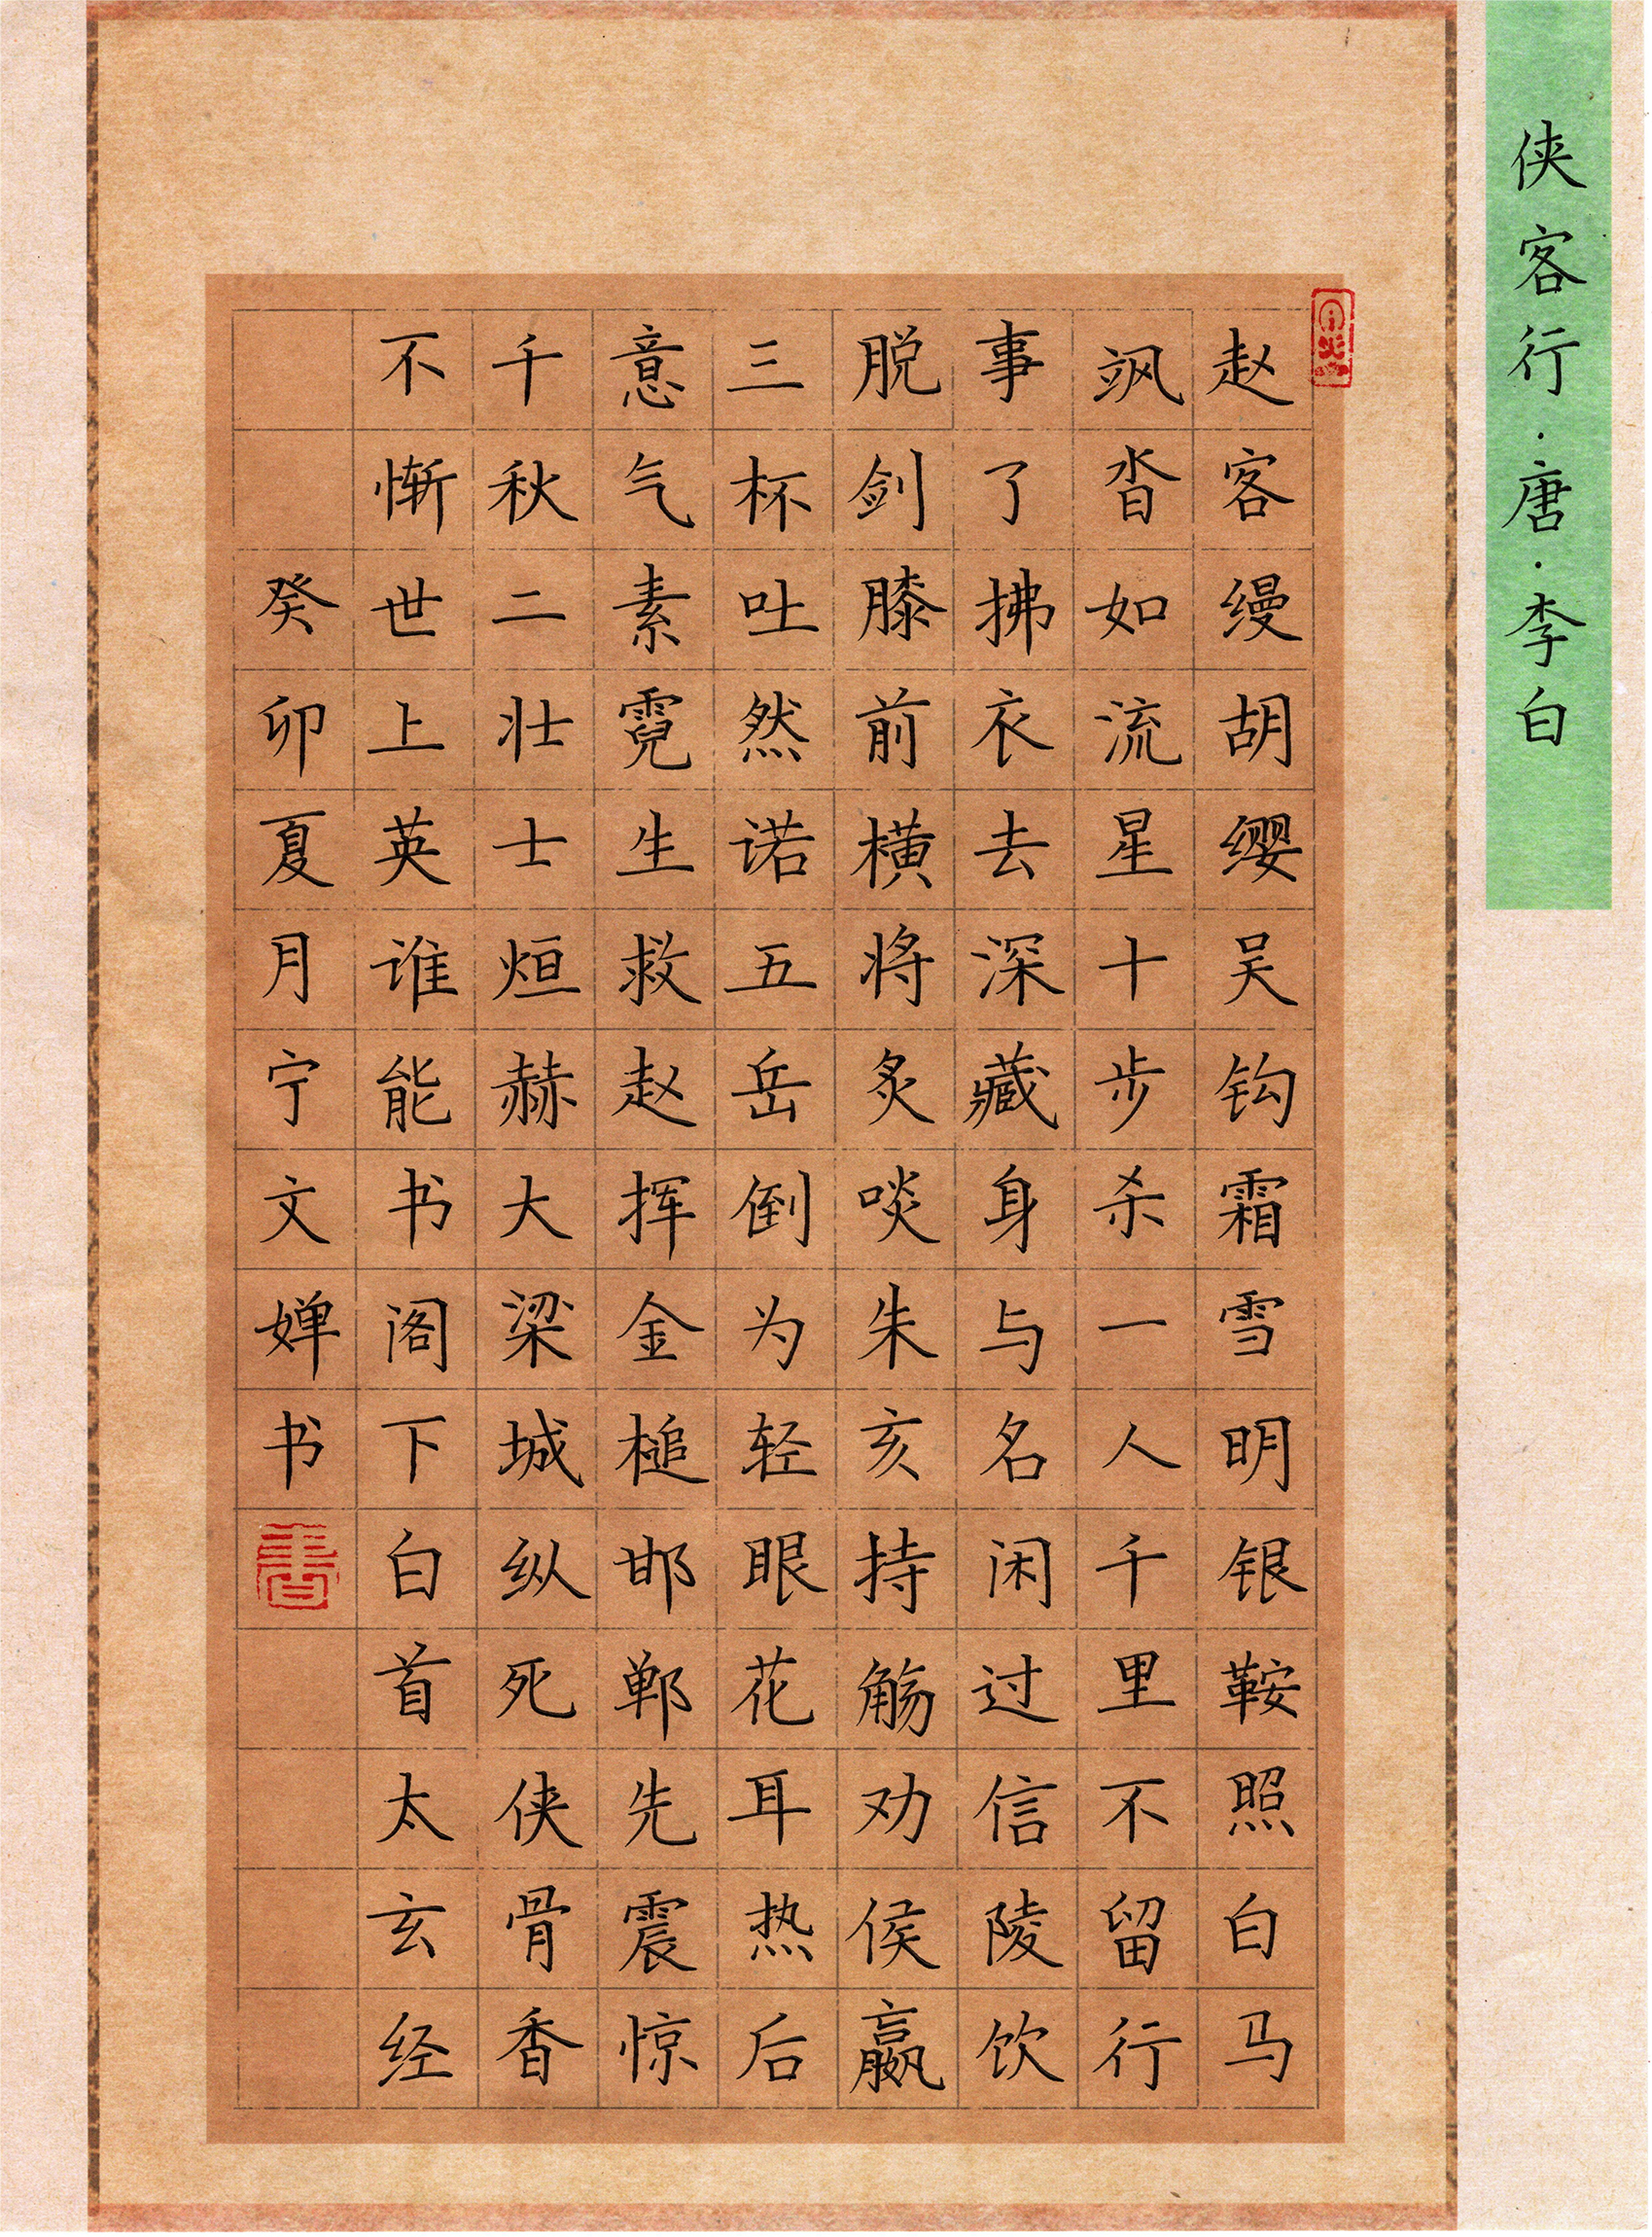 侠客行·唐·李白
赵客缦胡缨吴钩霜雪明银鞍照白马
飒沓如流星十步杀一人千里不留行
事了拂衣去深藏身与名闲过信陵饮
脱剑膝前横将炙啖朱亥持觞劝侯嬴
三杯吐然诺五岳倒为轻眼花耳热后
意气素霓生救赵挥金槌邯郸先震惊
千秋二壮士烜赫大梁城纵死侠骨香
不惭世上英谁能书阁下白首太玄经
癸卯夏月宁文婵书
書